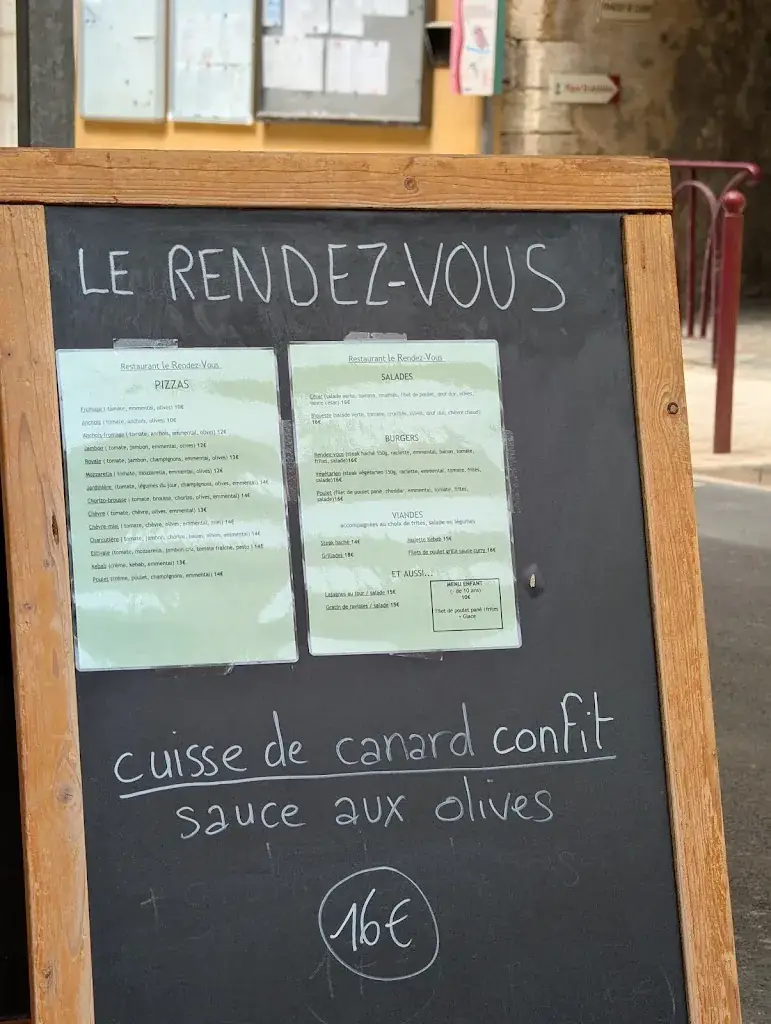 LE RENDEZ-VOUS
Restaurant le Rendez-Vous
PIZZAS
Fromage ( tomate, emmental, olives) 10€
Anchois ( tomate, anchois, olives) 12€
Anchois-fromage (tomate, anchois, emmental, olives) 12€
Jambon ( tomate, jambon, emmental, olives) 12€
Royale ( tomate, jambon, champignons, emmental, olives) 13€
Mozzarella ( tomate, mozzarella, emmental, olives) 12€
Jardinière (tomate, légumes du jour, champignons, olives, emmental) 14€
Chorizo-brousse ( tomate, brousse, chorizo, olives, emmental) 14€
Chèvre ( tomate, chèvre, olives, emmental) 13€
Chèvre-miel ( tomate, chèvre, olives, emmental, miel) 14€
Charcutière ( tomate, jambon, chorizo, bacon, olives, emmental)
Estivale (tomate, mozzarella, jambon cru, tomate fraîche, pesto )
Kebab (crème, kebab, emmental) 13€
Poulet (crème, poulet, champignons, emmental) 14€
Restaurant le Rendez-Vous
SALADES
César (salade verte, tomate, croûtons, filet de poulet, œuf dur, olives,
sauce césar) 16€
(salade verte, tomate, croûtons, olives, œuf dur, chèvre chaud)
16€
BURGERS
Rendez-vous (steak haché 150g, raclette, emmental, bacon, tomate,
frites, salade)16€
Végétarien (steak végétarien 150g, raclette, emmental, tomate, frites,
salade)16€
Poulet (filet de poulet pané, cheddar, emmental, tomate, frites,
salade)16€
VIANDES
accompagnées au choix de frites, salade ou légumes
Steak haché 14€
Assiette Kebab 15€
Grillades 18€
Filets de poulet grillé sauce curry 16€
ET AUSSI...
Lasagnes du jour / salade 15€
Gratin de ravioles / salade 15€
MENU ENFANT
(- de 10 ans)
10€
Filet de poulet pané (frites)
+ Glace
cuisse de canard confit
sauce aux olives
16€